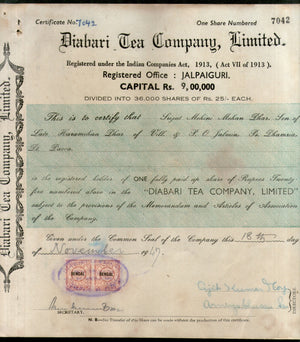 Certificate No. 7042
One Share Numbered 7042
Diabari Tea Company, Limited.
Registered under the Indian Companies Act, 1913, (Act VII of 1913).
Registered Office : JALPAIGURI.
CAPITAL Rs. 9,00,000
DIVIDED INTO 36,000 SHARES OF Rs. 25/- EACH.
This is to certify that Mohini Mohan Dhar. Son of
Late Dhar of Vill. & P.O.
is the registered holder of ONE fully paid up share of Rupees Twenty
five numbered above in the "DIABARI TEA COMPANY, LIMITED"
subject to the provisions of the Memorandum and Articles of Association
of the Company.
Given under the Common Seal of the Company this 18th day
of November 19
BENGAL BENGAL
SECRETARY.
DIRECTORS.
N. B.—No Transfer of this Share can be made without the production of this
Diabari Tea Company, Limited.